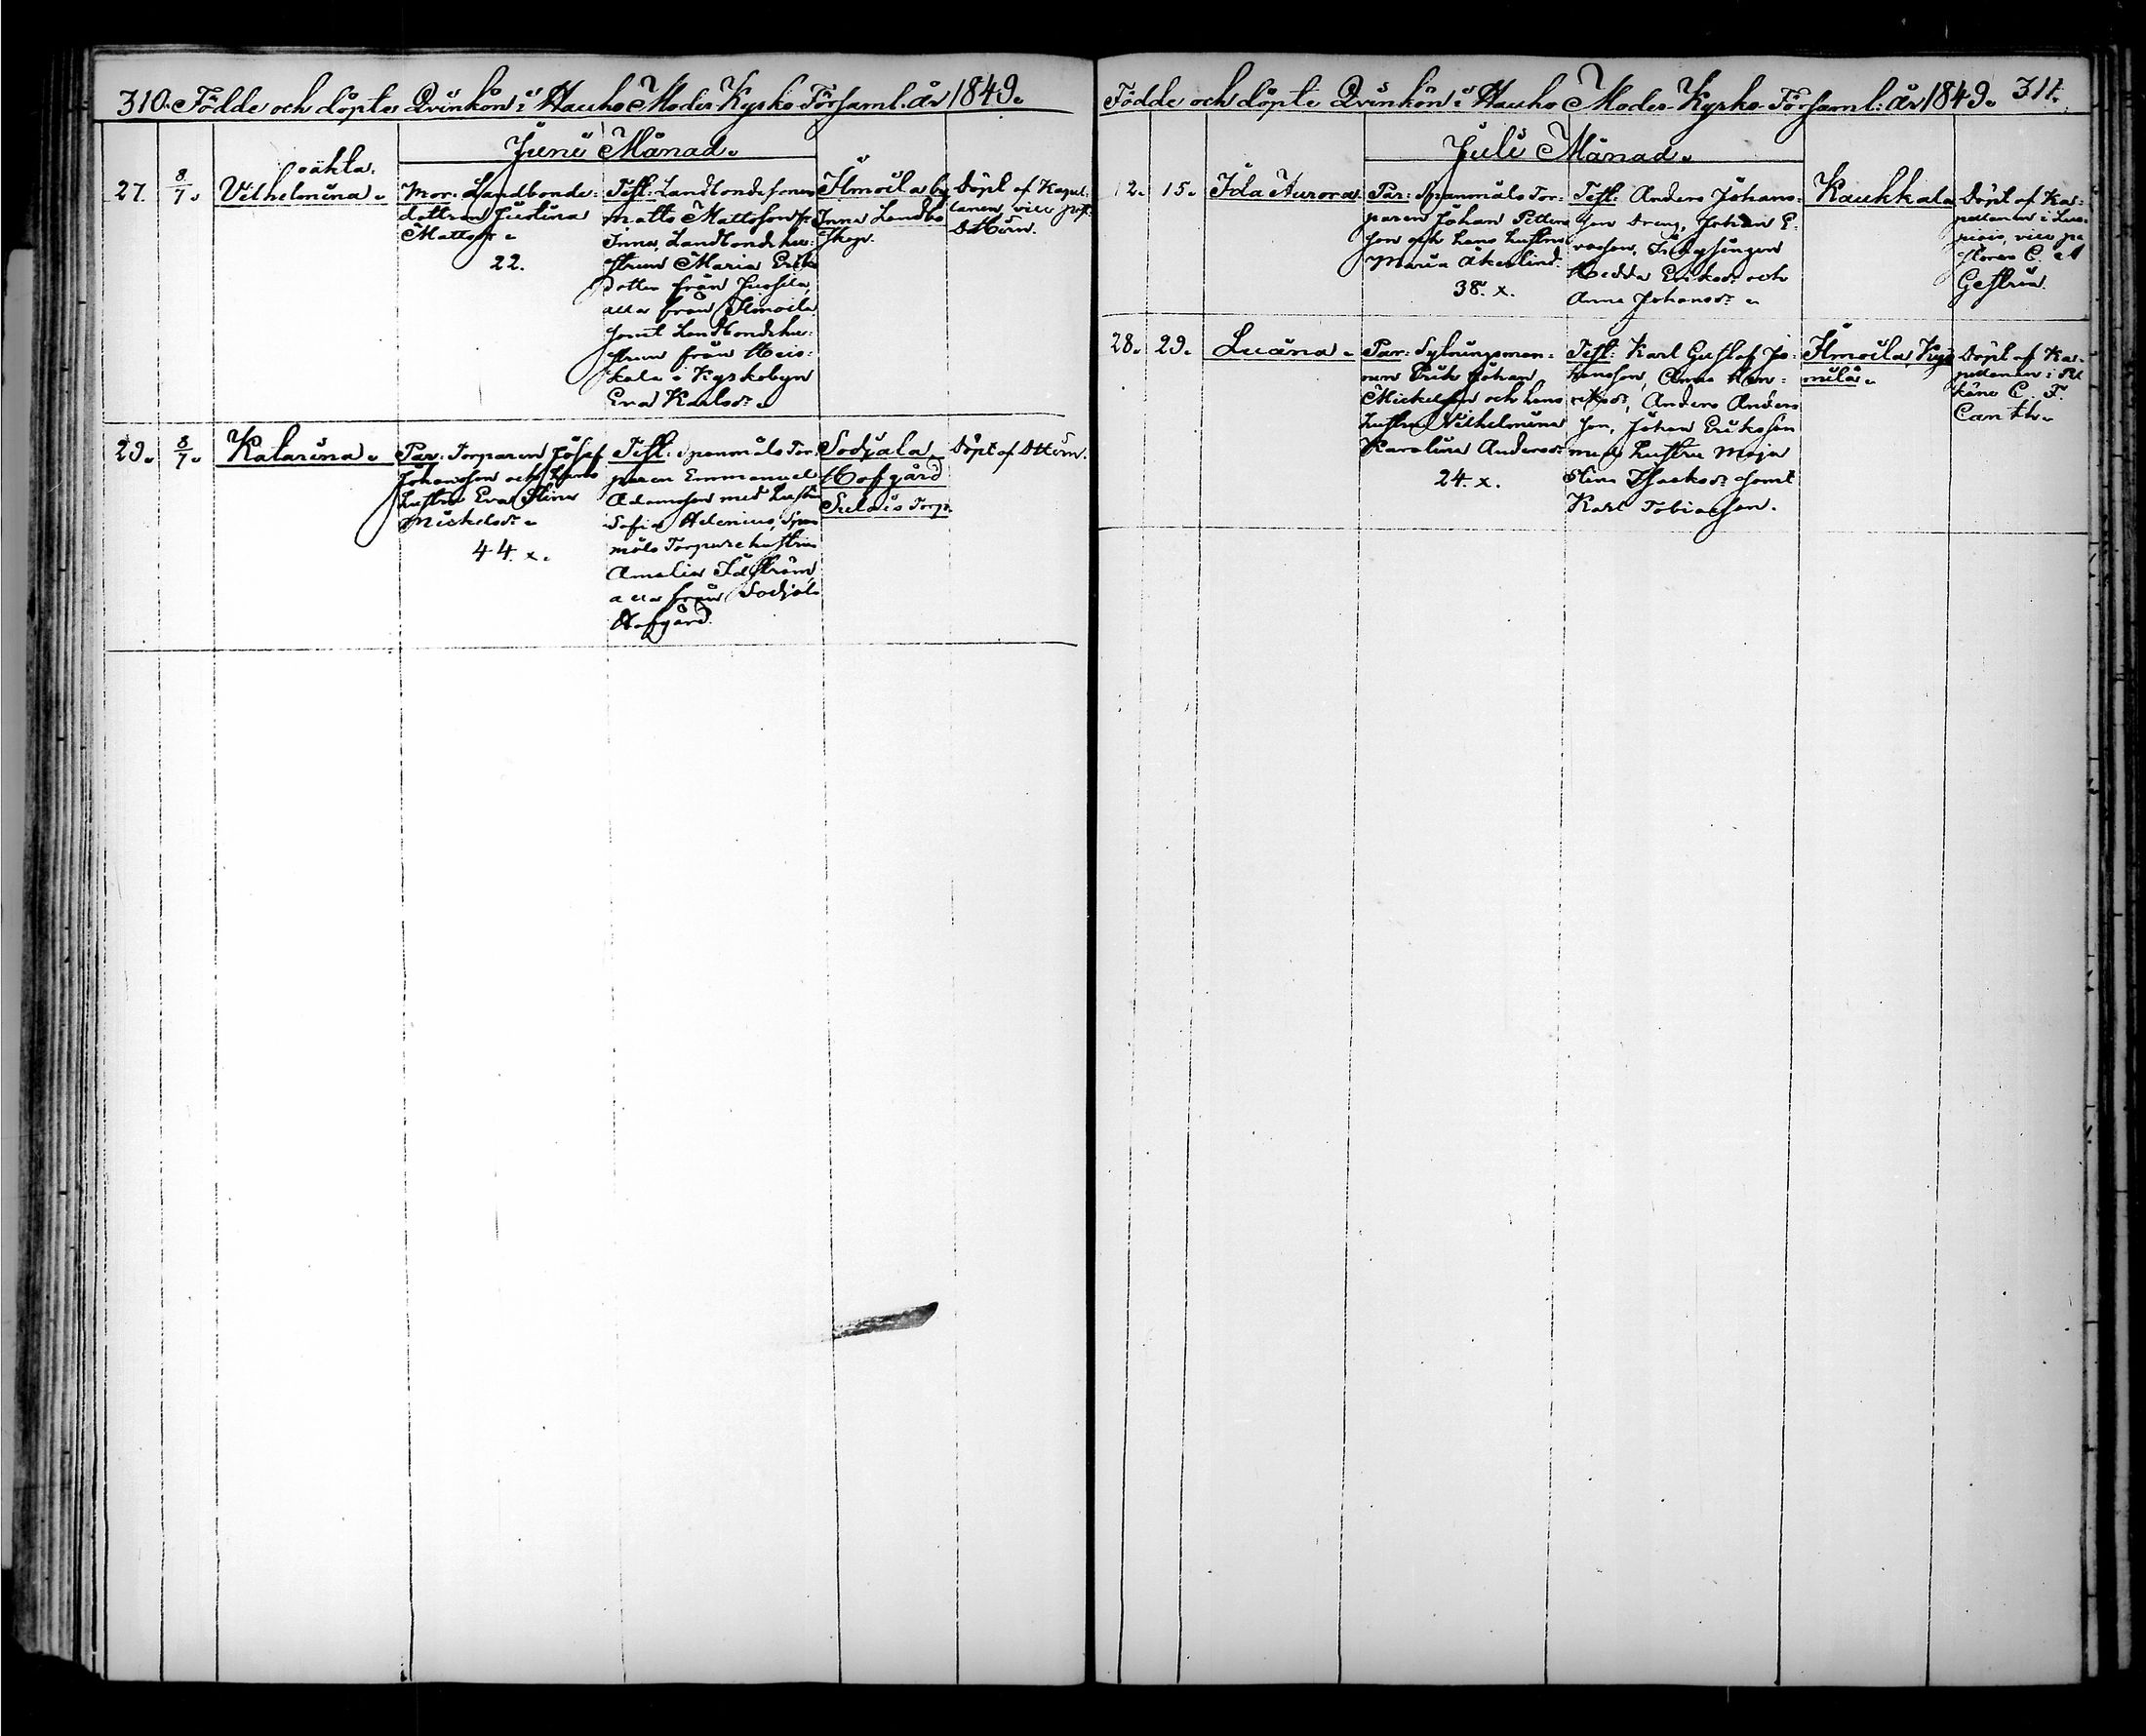 310. Födde och döpte Qvinkön i Hauho Moder Kyrko Församl. år 1849.
Juni Månad.
27. 8/7.
oäkta.
Vilhelmina.
Mor: Landbonde-
dottren Justina
Mattsdr.
22.
Test: Landbondesonen
Matts Mattsson fr.
Inna, Landbondehu-
strun Maria Eriks
dotter från
alla från Ilmoila
samt Landbondehu-
strun från Heis-
kala i Kyrkobyn
Eva Karlsdr.
Ilmoila by
Inna Landbo
Döpt af Kapel-
lanen, vice past.
29. 8/7.
Katarina.
Par: Torparen Josef
Johansson och hans
hustru Eva Stina
Mickelsdr.
44. x.
Test: Spanmåls Tor-
paren Emmanuel
Adamsson med hustru
Sofia Helenius, Span-
måls Torparehustrun
Amalia Idström,
alla från Sodjala
Hofgård.
Sodjala
Hofgård
Torp.
Döpt af
Födde och döpte Qvinkön i Hauho Moder-Kyrko-Församl: år 1849. 311.
Juli Månad.
12. 15.
Ida Aurora
Par: Spanmåls Tor-
paren Johan Petters
son och hans hustru
Maria Åkerlind.
38. x.
Test: Anders Johans-
son Dreng, Johan E-
Hedda Eriksdr och
Anna Johansdr.
Kaukkala
Döpt af Ka-
pellanen i Luo-
piois, vice pa
storen C. A
Gestrin.
28. 29.
Luana.
Par: Sytningsman-
nen Erik Johan
Mickelsson och hans
hustru Vilhelmina
Karolina Andersdr
24. x.
Test: Karl Gustaf Jo-
hansson, Anna Hen-
riksdr, Anders Anders
son, Johan Eriksson
med hustru Maja
Stina Isaksdr samt
Karl Tobiasson.
Ilmoila, Kyy-
nilä.
Döpt af Ka-
pellanen i Pel
käne C. F.
Canth.